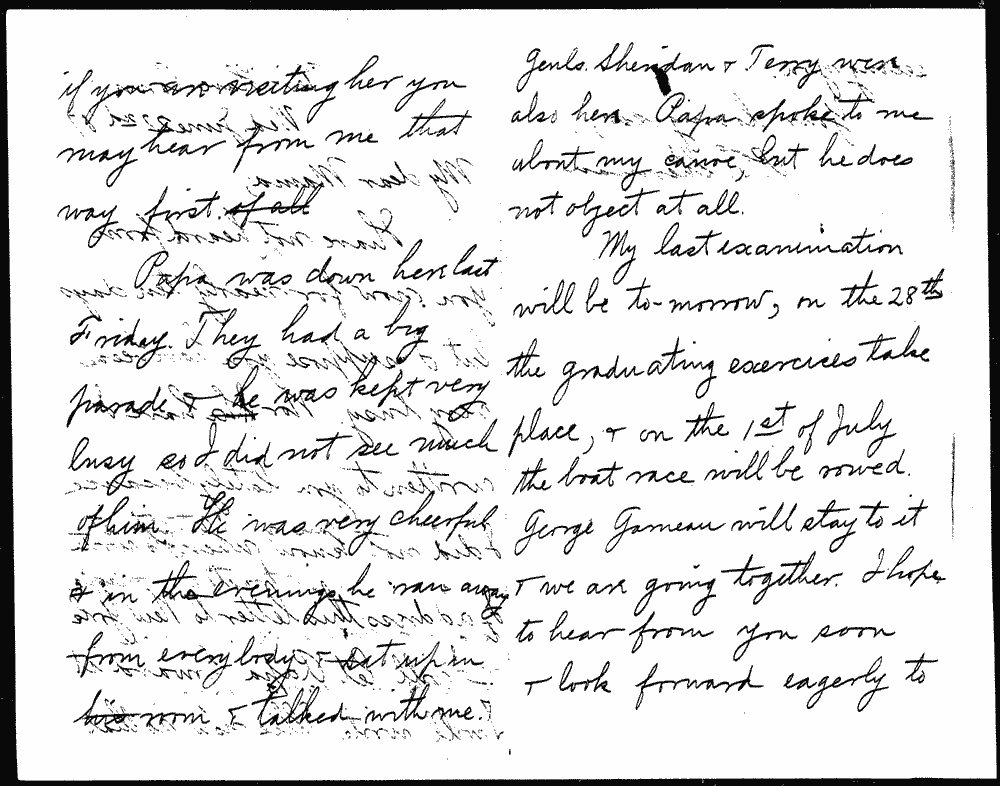 if you are visiting her you
may hear from me that
way first. of all
Papa was down here last
Friday. They had a big
parade & he was kept very
busy so I did not see much
of him. He was very cheerful
& in the evenings he ran away
from everybody & sat up in
his room & talked with me.
Genls. Sheridan & Terry were
also here. Papa spoke to me
about my canoe, but he does
not object at all.
My last examination
will be to-morrow, on the 28th
the graduating exercises take
place, & on the 1st of July
the boat race will be rowed.
George Garneau will stay to it
& we are going together. I hope
to hear from you soon
& look forward eagerly to